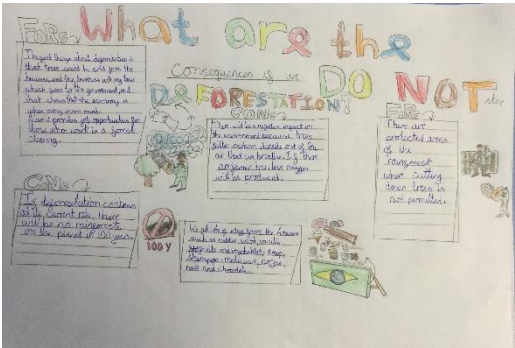 FORS
What are the
Consequences if we DO NOT stop
DEFORESTATION?
The good things about deforestation is
that trees could be sold from the
business, and the business will pay taxes
which goes to the government, and
that shows that the economy is
also provides job opportunities for
those who work in a forest
clearing.
CONS
There will be a negative impact on
the environment because trees
filter carbon dioxide out of the
air that we breathe. If
are fewer trees less oxygen
will be produced.
FORS
There are
protected areas
of the
rainforest
where cutting
down trees is
not permitted.
CONS
If deforestation continues
at its current rate, there
will be no rainforests
on the planet in 100 years.
100 Y
We get lots of things from the
such as rubber, wood,
soap,
shampoo, medicines, coffee,
nuts and chocolate.